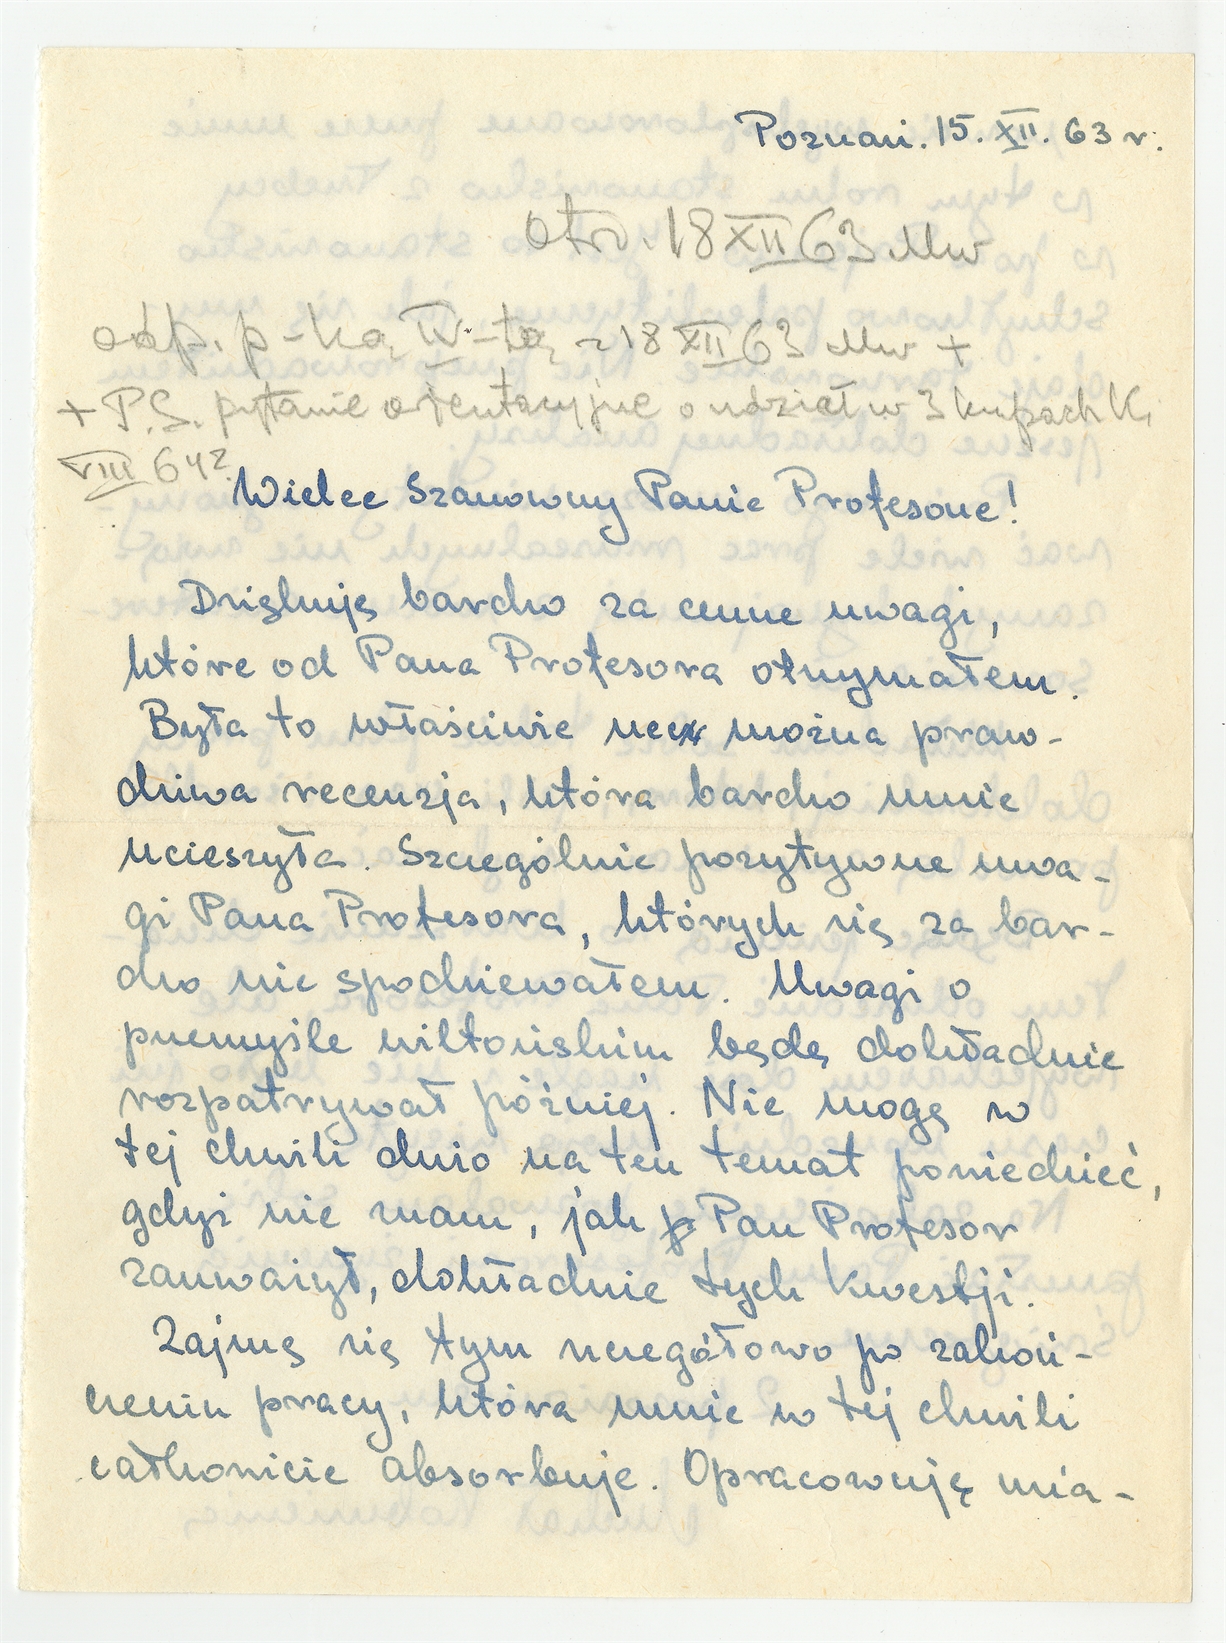 Poznań. 15. XII. 63 r.
otrz. 18 XII 63 Mw
odp. p-ką IV-tą z 18 XII 63 Mw +
+ P.S. pytanie orientacyjne o udział w 3 kupach K,
VIII 64 r?
Wielce Szanowny Panie Profesorze!
Dziękuję bardzo za cenne uwagi,
które od Pana Profesora otrzymałem.
Była to właściwie rzecz można praw-
dziwa recenzja, która bardzo mnie
ucieszyła. Szczególnie pozytywne uwa-
gi Pana Profesora, których się za bar-
dzo nie spodziewałem. Uwagi o
przemyśle wiłtorskim będę dokładnie
rozpatrywał później. Nie mogę w
tej chwili dużo na ten temat powiedzieć,
gdyż nie znam, jak Pan Profesor
zauważył, dokładnie tych kwestji.
Zajmę się tym szczegółowo po zakoń-
czeniu pracy, która mnie w tej chwili
całkowicie absorbuje. Opracowuję mia-